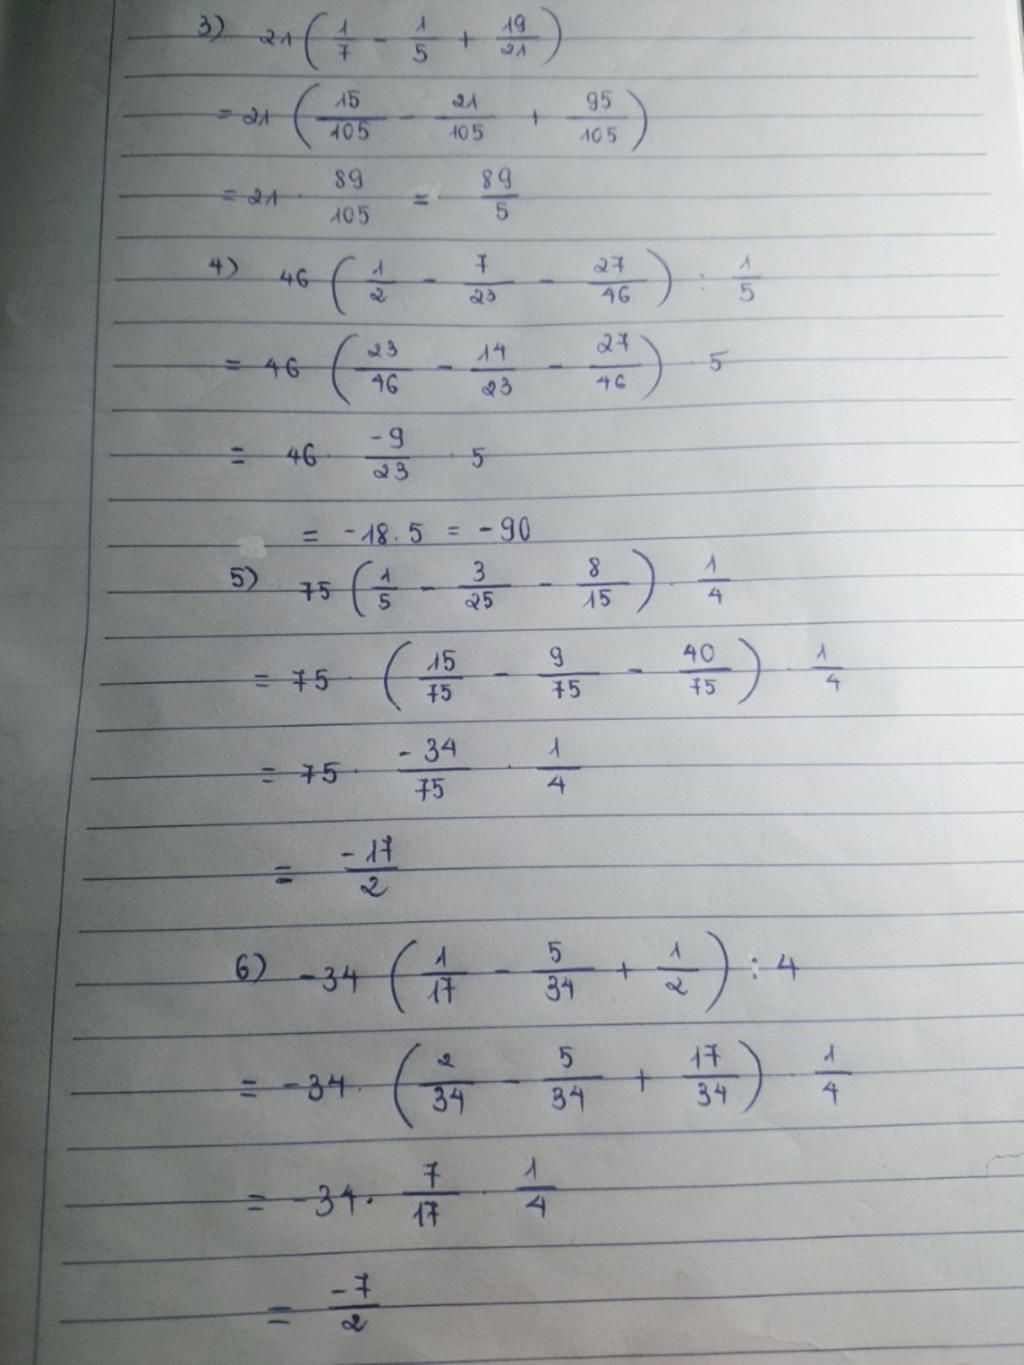 3) 21 ( 1/7 - 1/5 + 19/21 )
= 21 ( 15/105 - 21/105 + 95/105 )
= 21 · 89/105 = 89/5
4) 46 ( 1/2 - 7/23 - 27/46 ) : 1/5
= 46 ( 23/46 - 14/23 - 27/46 ) 5
= 46 · -9/23 · 5
= -18.5 = -90
5) 75 ( 1/5 - 3/25 - 8/15 ) · 1/4
= 75 · ( 15/75 - 9/75 - 40/75 ) · 1/4
= 75 · -34/75 · 1/4
= -17/2
6) -34 ( 1/17 - 5/34 + 1/2 ) : 4
= -34 · ( 2/34 - 5/34 + 17/34 ) · 1/4
= -34 · 7/17 · 1/4
= -7/2